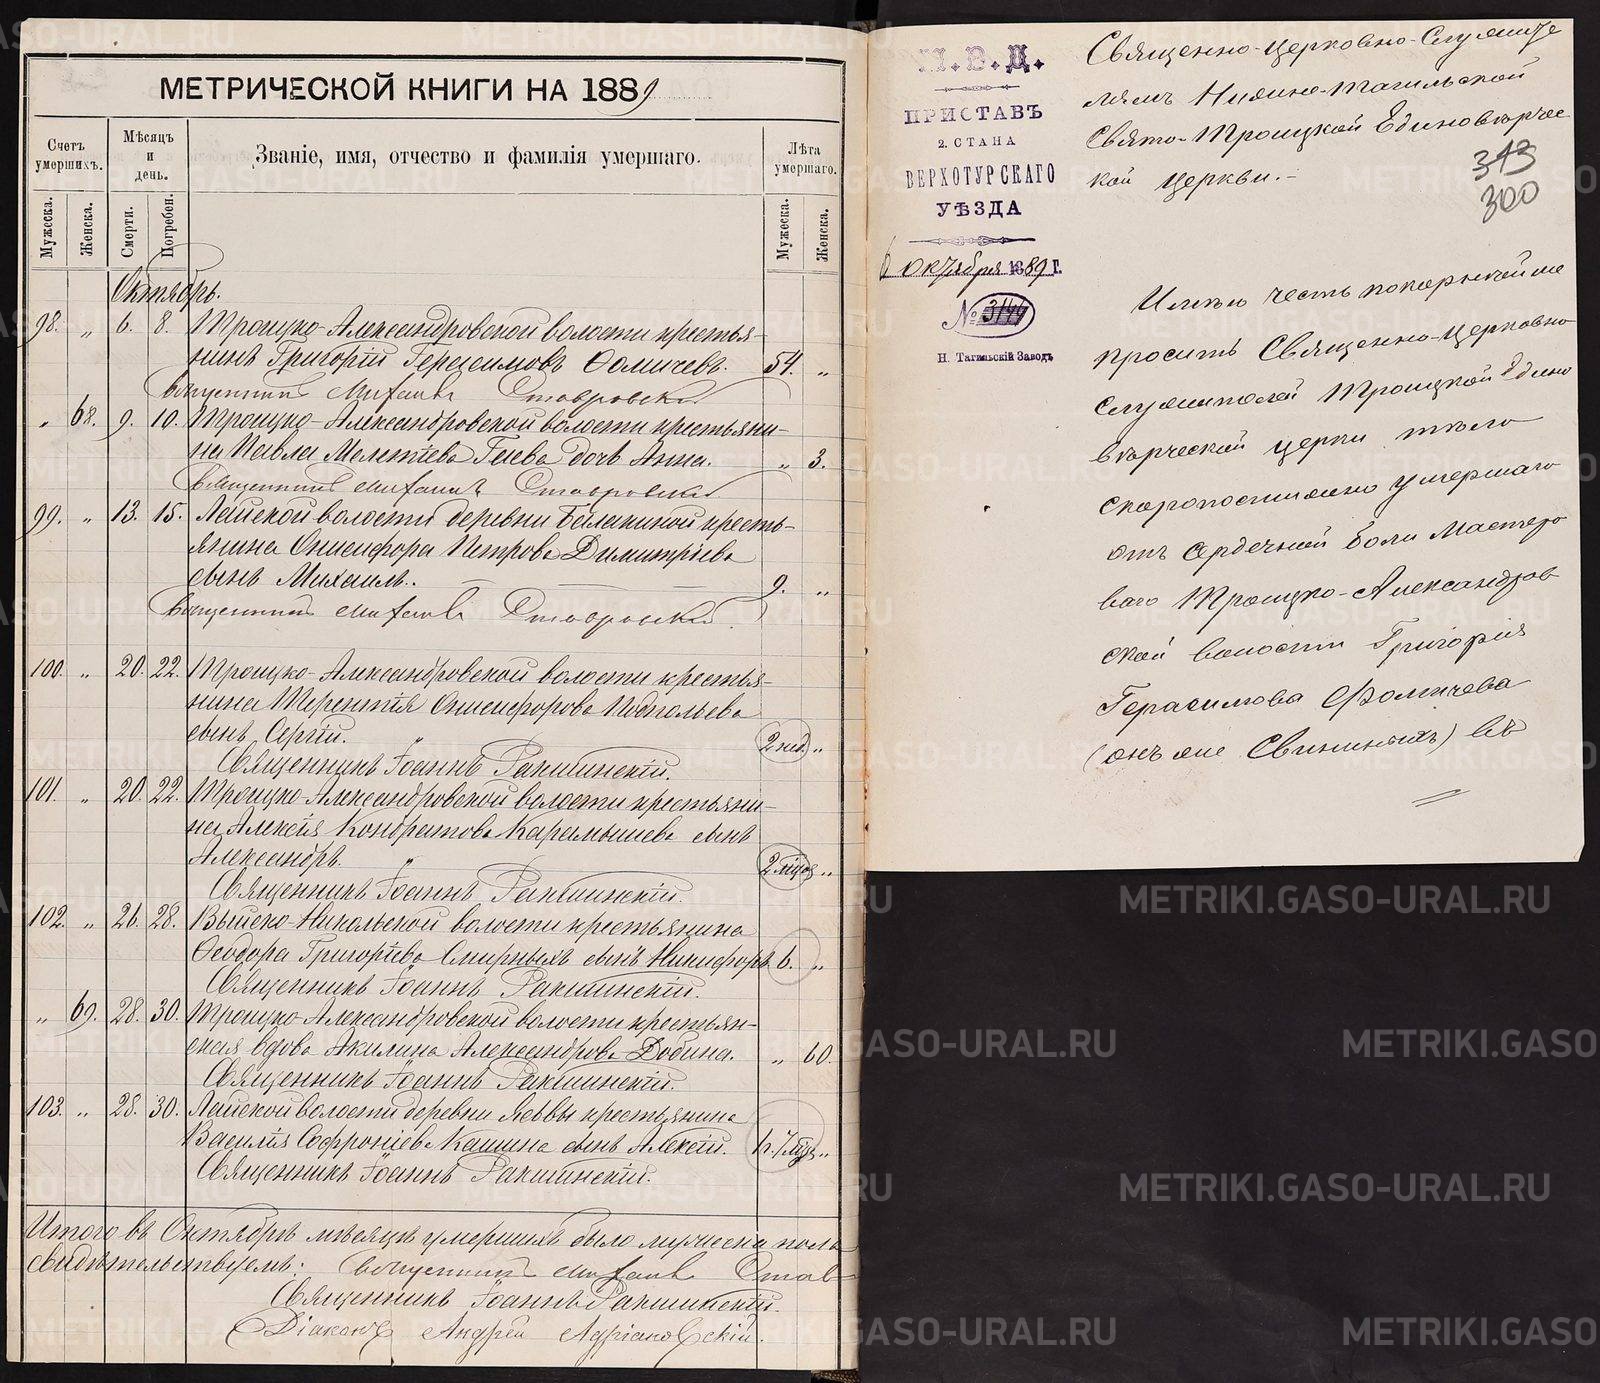 МЕТРИЧЕСКОЙ КНИГИ НА 1889
Счетъ умершихъ.
Мѣсяцъ и день.
Званіе, имя, отчество и фамилія умершаго.
Лѣта умершаго.
Мужеска. Женска. Смерти. Погребен. Мужеска. Женска.
Октябрь.
98. „ 6. 8. Троицко-Александровской волости крестья-
нинъ Григорій Герасимовъ Ѳомичевъ. 54. „
Священникъ Михаилъ Ставровскій
„ 68. 9. 10. Троицко-Александровской волости крестьяни-
на Павла Мелетіева Гаева дочь Анна. „ 3.
Священникъ Михаилъ Ставровскій
99. „ 13. 15. Лайской волости деревни Балакиной кресть-
янина Онисифора Петрова Димитріева
сынъ Михаилъ. 9. „
Священникъ Михаилъ Ставровскій
100. „ 20. 22. Троицко-Александровской волости крестья-
нина Терентія Онисифорова
сынъ Сергій. 2 нед. „
Священникъ Іоаннъ Ракшинскій.
101. „ 20. 22. Троицко-Александровской волости крестьяни-
на Алексѣя Кондратова Карамышева сынъ
Александръ. 2 мѣсяц „
Священникъ Іоаннъ Ракшинскій.
102. „ 26. 28. Выйско-Никольской волости крестьянина
Ѳеодора Григоріева Смирныхъ сынъ Никифоръ 6. „
Священникъ Іоаннъ Ракшинскій.
„ 69. 28. 30. Троицко-Александровской волости крестьян-
ская вдова Акилина Александрова Добина. „ 60.
Священникъ Іоаннъ Ракшинскій.
103. „ 28. 30. Лайской волости деревни крестьянина
Василія Софроніева Кашина сынъ Алексій. „
Священникъ Іоаннъ Ракшинскій.
Итого въ Октябрѣ мѣсяцѣ умершихъ было мужеска пола
свидѣтельствуемъ: Священникъ Михаилъ Став
Священникъ Іоаннъ Ракшинскій.
Діаконъ Андрей Адріановскій.
М.В.Д.
ПРИСТАВЪ
2. СТАНА
ВЕРХОТУРСКАГО
УѢЗДА
6 октября 1889 г.
№ 3144
Н. Тагильскій Заводъ
Священно-церковно-служите
лямъ Нижне-тагильской
Свято-Троицкой Единовѣрчес
кой церкви.-
313
300
Имѣю честь покорнѣйше
просить Священно-церковно
служителей Троицкой Едино
вѣрческой церкви тѣло
скоропостижно умершаго
отъ сердечной боли мастеро
ваго Троицко-Александров
ской волости Григорія
Герасимова Фомичева
(онъ же Свининыхъ) въ
METRIKI.GASO-URAL.RU